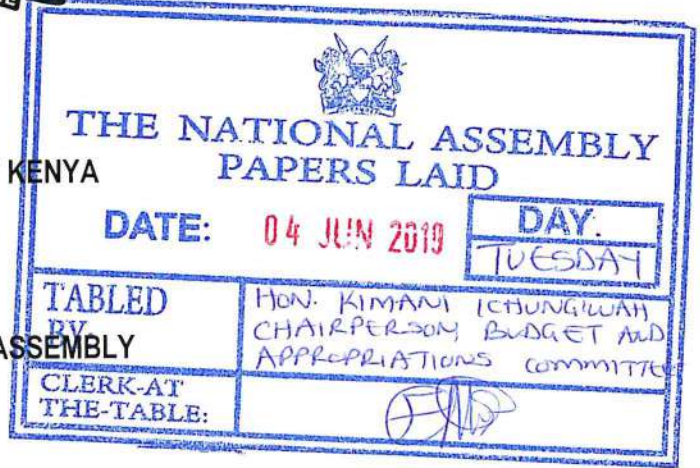 THE NATIONAL ASSEMBLY
PAPERS LAID
KENYA
DATE: 04 JUN 2019 DAY.
TUESDAY
TABLED BY HON. KIMANI ICHUNGWAH
CHAIRPERSON, BUDGET AND
APPROPRIATIONS COMMITTEE
ASSEMBLY
CLERK-AT
THE-TABLE: